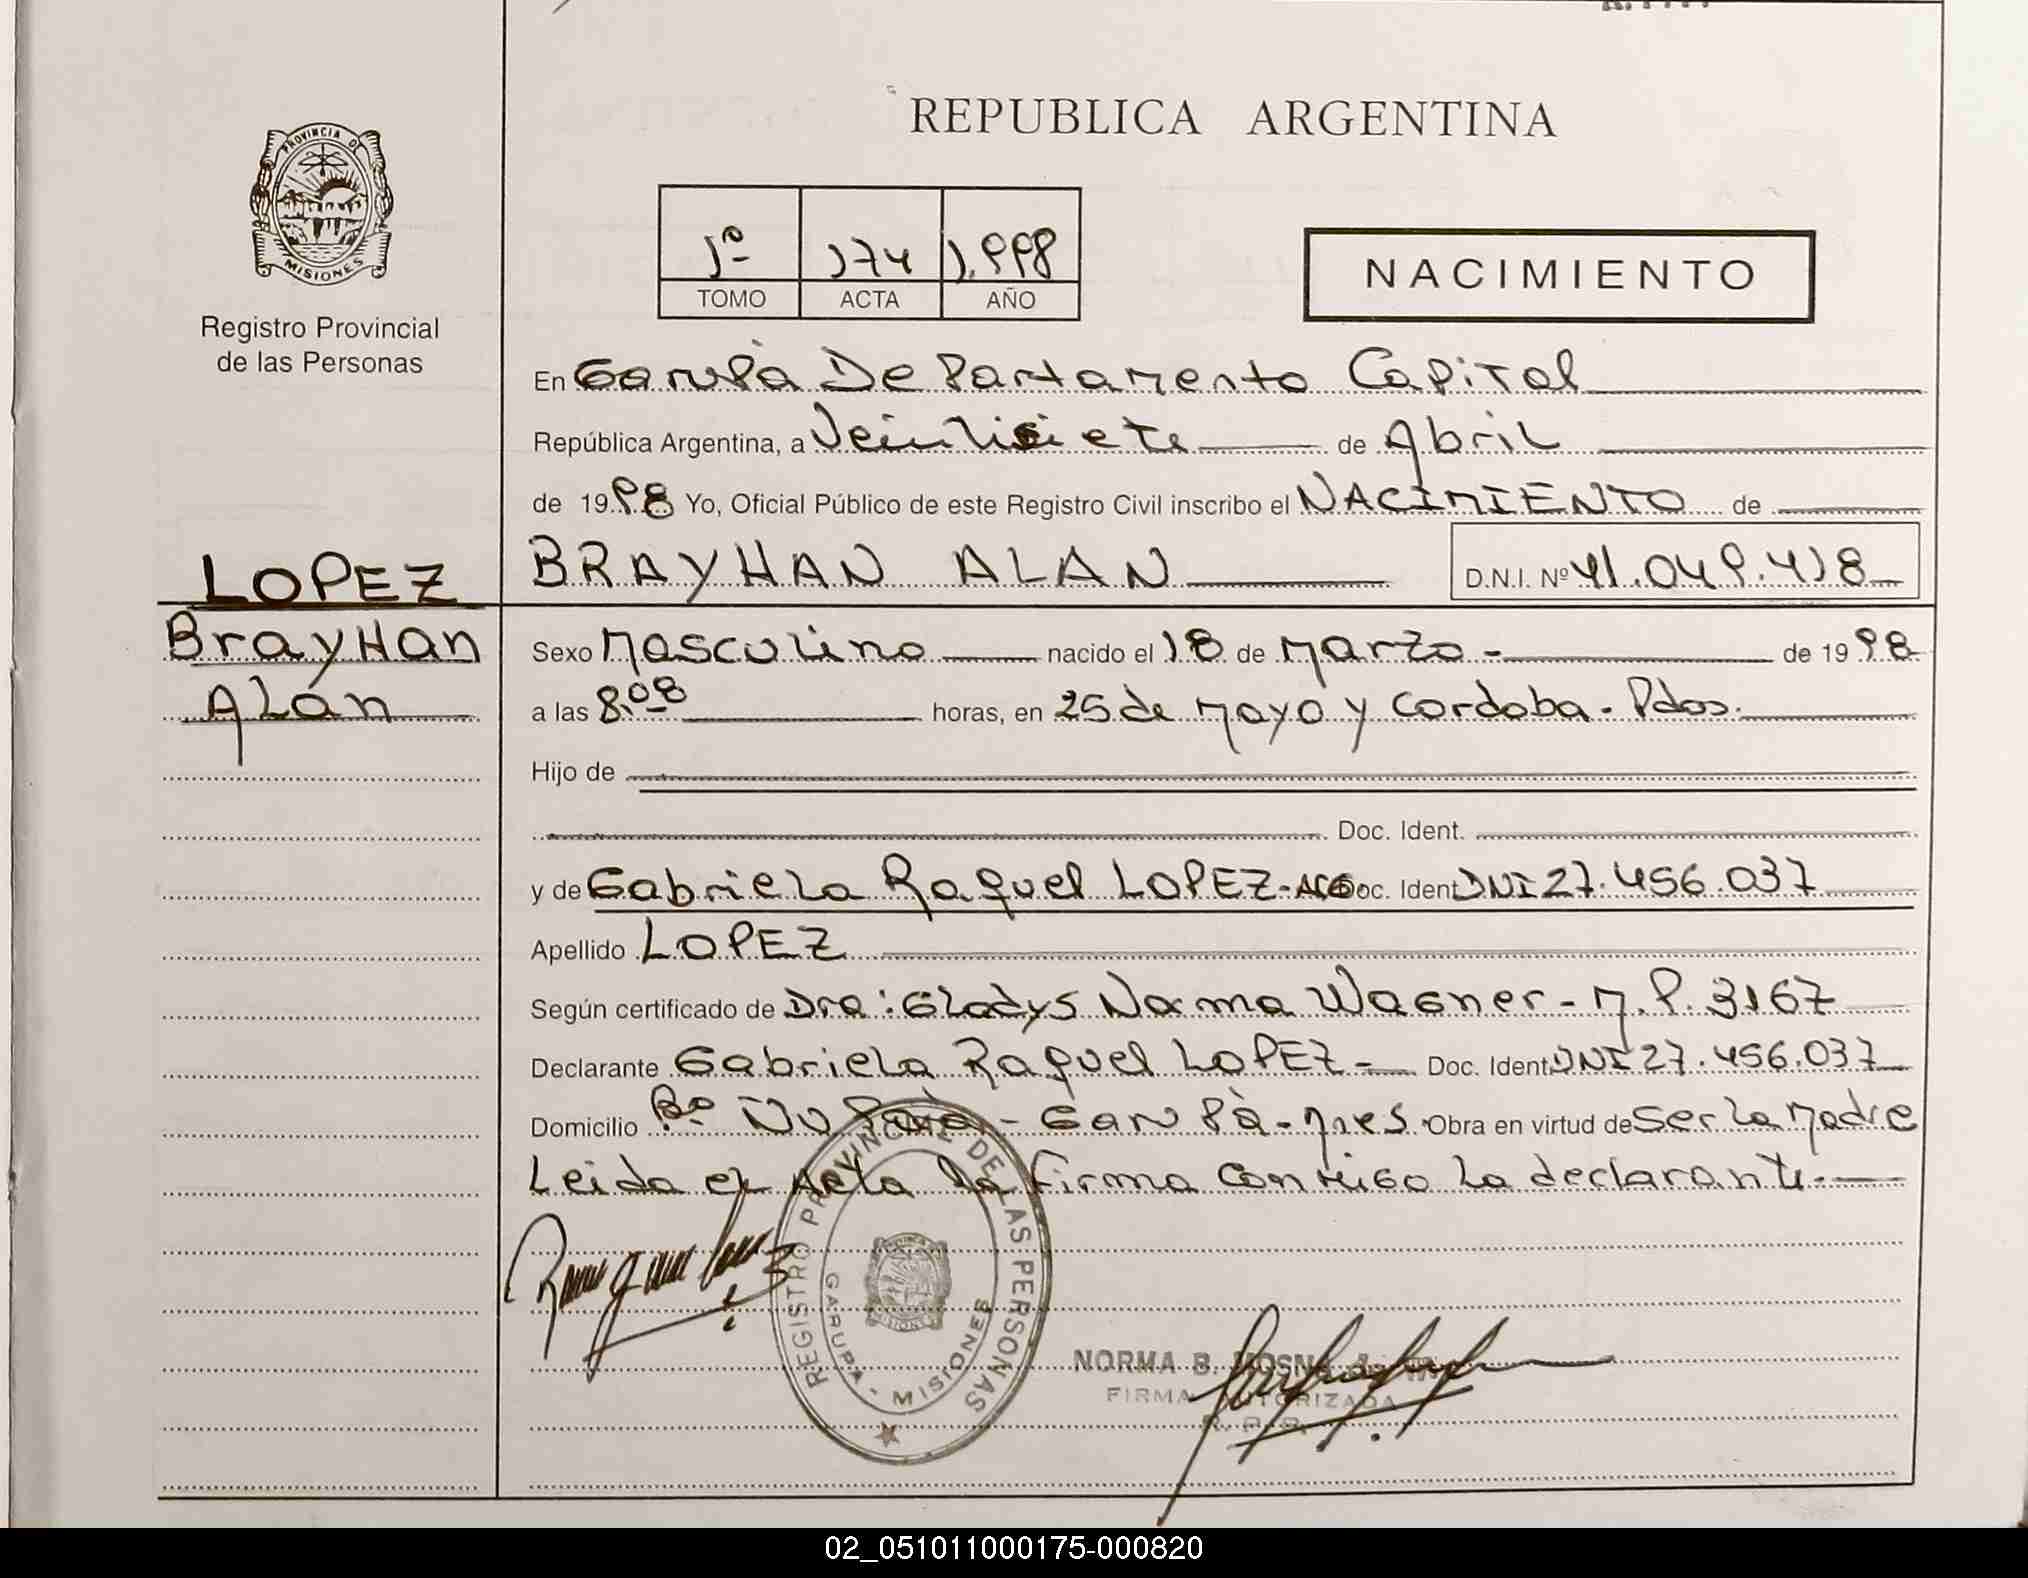 REPUBLICA ARGENTINA
PROVINCIA DE
MISIONES
Registro Provincial
de las Personas
1º 174 1.998
TOMO ACTA AÑO
NACIMIENTO
En Garupà Departamento Capital
República Argentina, a Veintisiete de Abril
de 1998 Yo, Oficial Público de este Registro Civil inscribo el NACIMIENTO de
LOPEZ
BRAYHAN ALAN D.N.I. Nº 41.049.418
Brayhan
Alan
Sexo Masculino nacido el 18 de Marzo - de 1998
a las 8,08 horas, en 25 de Mayo y Cordoba - Pdas.
Hijo de
Doc. Ident.
y de Gabriela Raquel LOPEZ - ARG. Doc. Ident DNI 27.456.037
Apellido LOPEZ
Según certificado de Dra: Gladys Norma Wagner - M.P. 3167
Declarante Gabriela Raquel LOPEZ - Doc. Ident DNI 27.456.037
Domicilio Bº Ñu Porà - Garupà - Mnes. Obra en virtud de Ser la Madre
Leida el Acta la firma conmigo la declarante.
REGISTRO PROVINCIAL DE LAS PERSONAS
GARUPA - MISIONES
NORMA B.
FIRMA AUTORIZADA
02_051011000175-000820